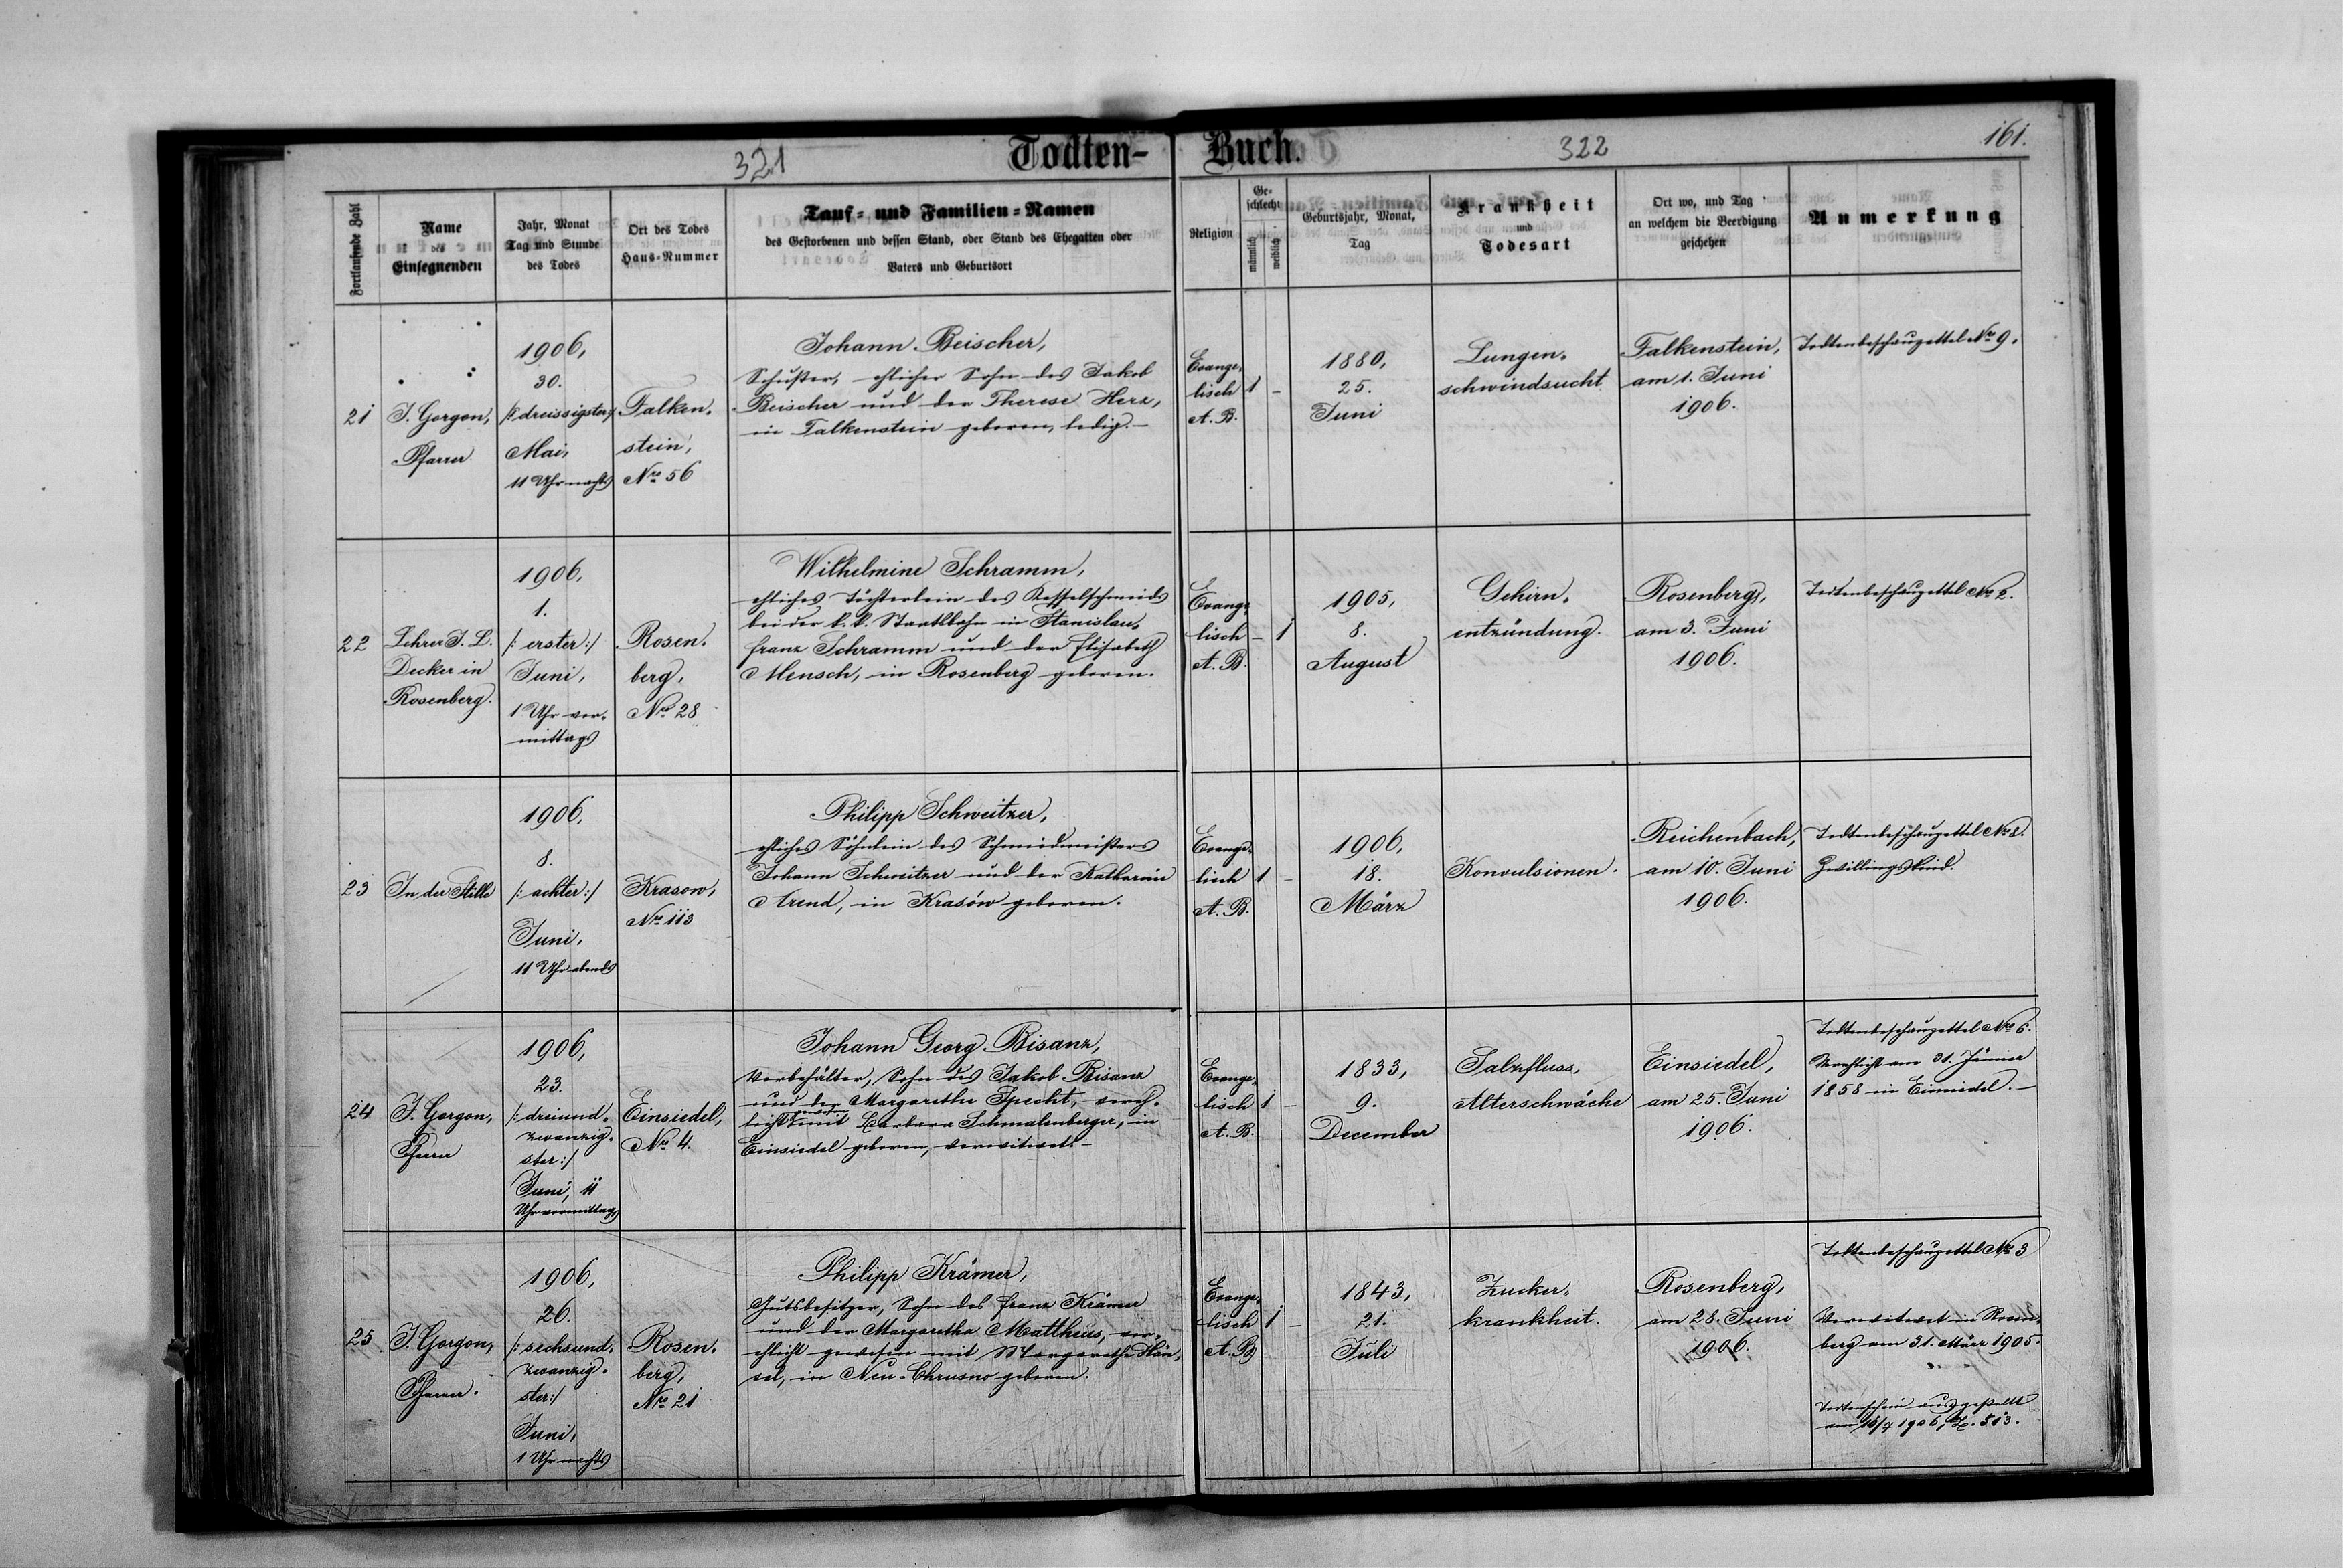 321
Todten-
Buch.
322
161.
Fortlaufende Zahl
Name
des
Einsegnenden
Jahr, Monat
Tag und Stunde
des Todes
Ort des Todes
Haus-Nummer
Tauf- und Familien-Namen
des Gestorbenen und dessen Stand, oder Stand des Ehegatten oder
Vaters und Geburtsort
Religion
Ge-
schlecht
männlich
weiblich
Geburtsjahr, Monat,
Tag
Krankheit
und
Todesart
Ort wo, und Tag
an welchem die Beerdigung
geschehen
Anmerkung
21
J. Gorgon,
Pfarrer
1906,
30.
/:dreissigster:/
Mai,
11 Uhr nachts
Falken-
stein,
Nro 56
Johann Beischer,
Schuster, ehlicher Sohn des Jakob
Beischer und der Therese Herz,
in Falkenstein geboren, ledig.-
Evange-
lisch
A. B.
1
-
1880,
25.
Juni
Lungen-
schwindsucht
Falkenstein,
am 1. Juni
1906.
Todtenbeschauzettel Nro 9.
22
Lehrer J. L.
Decker in
Rosenberg.
1906,
1.
/: erster :/
Juni,
1 Uhr vor-
mittags
Rosen-
berg,
Nro 28
Wilhelmine Schramm,
ehliches Töchterlein des Kesselschmieds
bei der k. k. Staatsbahn in Stanislau,
Franz Schramm und der Elisabeth
Mensch, in Rosenberg geboren.
Evange-
lisch
A. B.
-
1
1905,
8.
August
Gehirn-
entzündung.
Rosenberg,
am 3. Juni
1906.
Todtenbeschauzettel Nro 2.
23
In der Stille
1906,
8.
/: achter :/
Juni,
11 Uhr abends
Krasow,
Nro 113
Philipp Schweitzer,
ehliches Söhnlein des Schmiedmeisters
Johann Schweitzer und der Katharine
Arend, in Krasów geboren.
Evange-
lisch
A. B.
1
-
1906,
18.
März
Konvulsionen.
Reichenbach,
am 10. Juni
1906.
Todtenbeschauzettel Nro 8.
Zwillingskind.
24
J. Gorgon,
Pfarrer
1906,
23.
/: dreiund-
zwanzig-
ster :/
Juni, 11
Uhr vormittags
Einsiedel,
Nro 4.
Johann Georg Bisanz,
Vorbehälter, Sohn des Jakob Bisanz
und der Margarethe Specht, vereh-
licht gewesen mit Barbara Schmalenberger, in
Einsiedel geboren, verwitwet.-
Evange-
lisch
A. B.
1
-
1833,
9.
December
Salzfluss,
Alterschwäche
Einsiedel,
am 25. Juni
1906.
Todtenbeschauzettel Nro 6.
Verehlicht am 31. Jänner
1858 in Einsiedel.-
25
J. Gorgon,
Pfarrer.
1906,
26.
/: sechsund-
zwanzig-
ster :/
Juni,
1 Uhr nachts
Rosen-
berg,
Nro 21
Philipp Krämer,
Gutsbesitzer, Sohn des Franz Krämer
und der Margaretha Mattheis, ver-
ehlicht gewesen mit Margarethe Hän-
sel, in Neu-Chrusno geboren.
Evange-
lisch
A. B.
1
-
1843,
21.
Juli
Zucker-
krankheit.
Rosenberg,
am 28. Juni
1906.
Todtenbeschauzettel Nro 3
Verwitwet in Rosen-
berg am 31. März 1905.
Todtenschein ausgestellt
am 1906, 513.